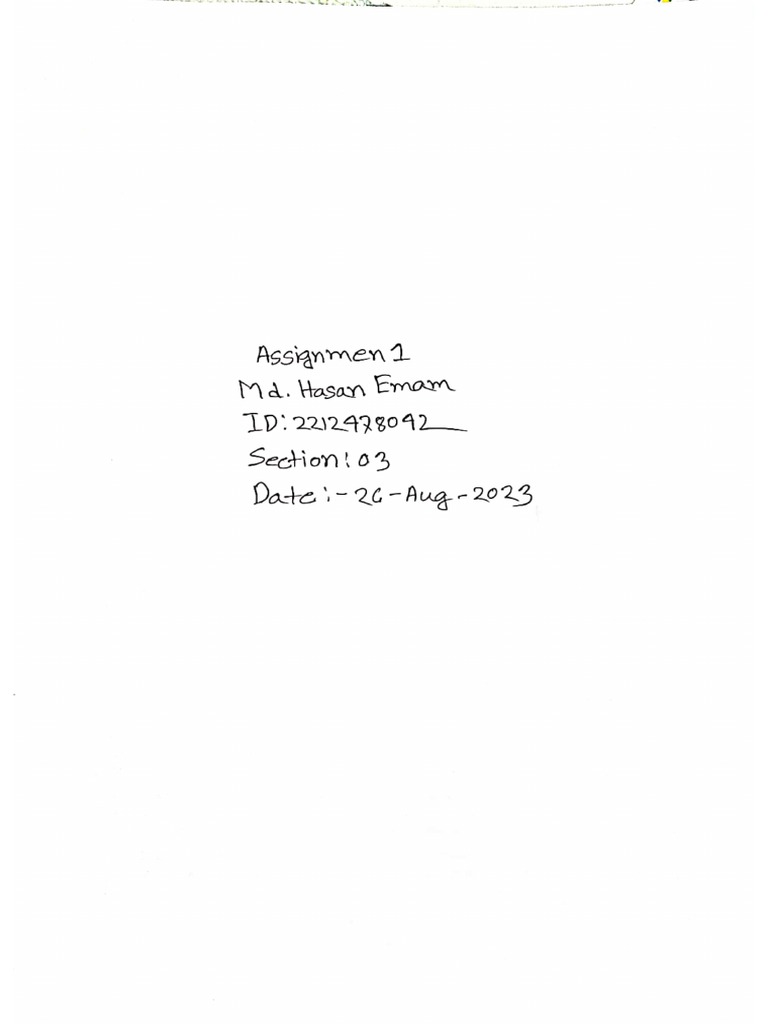 Assignmen 1
Md. Hasan Emam
ID: 2212478042
Section: 03
Date :- 26-Aug-2023